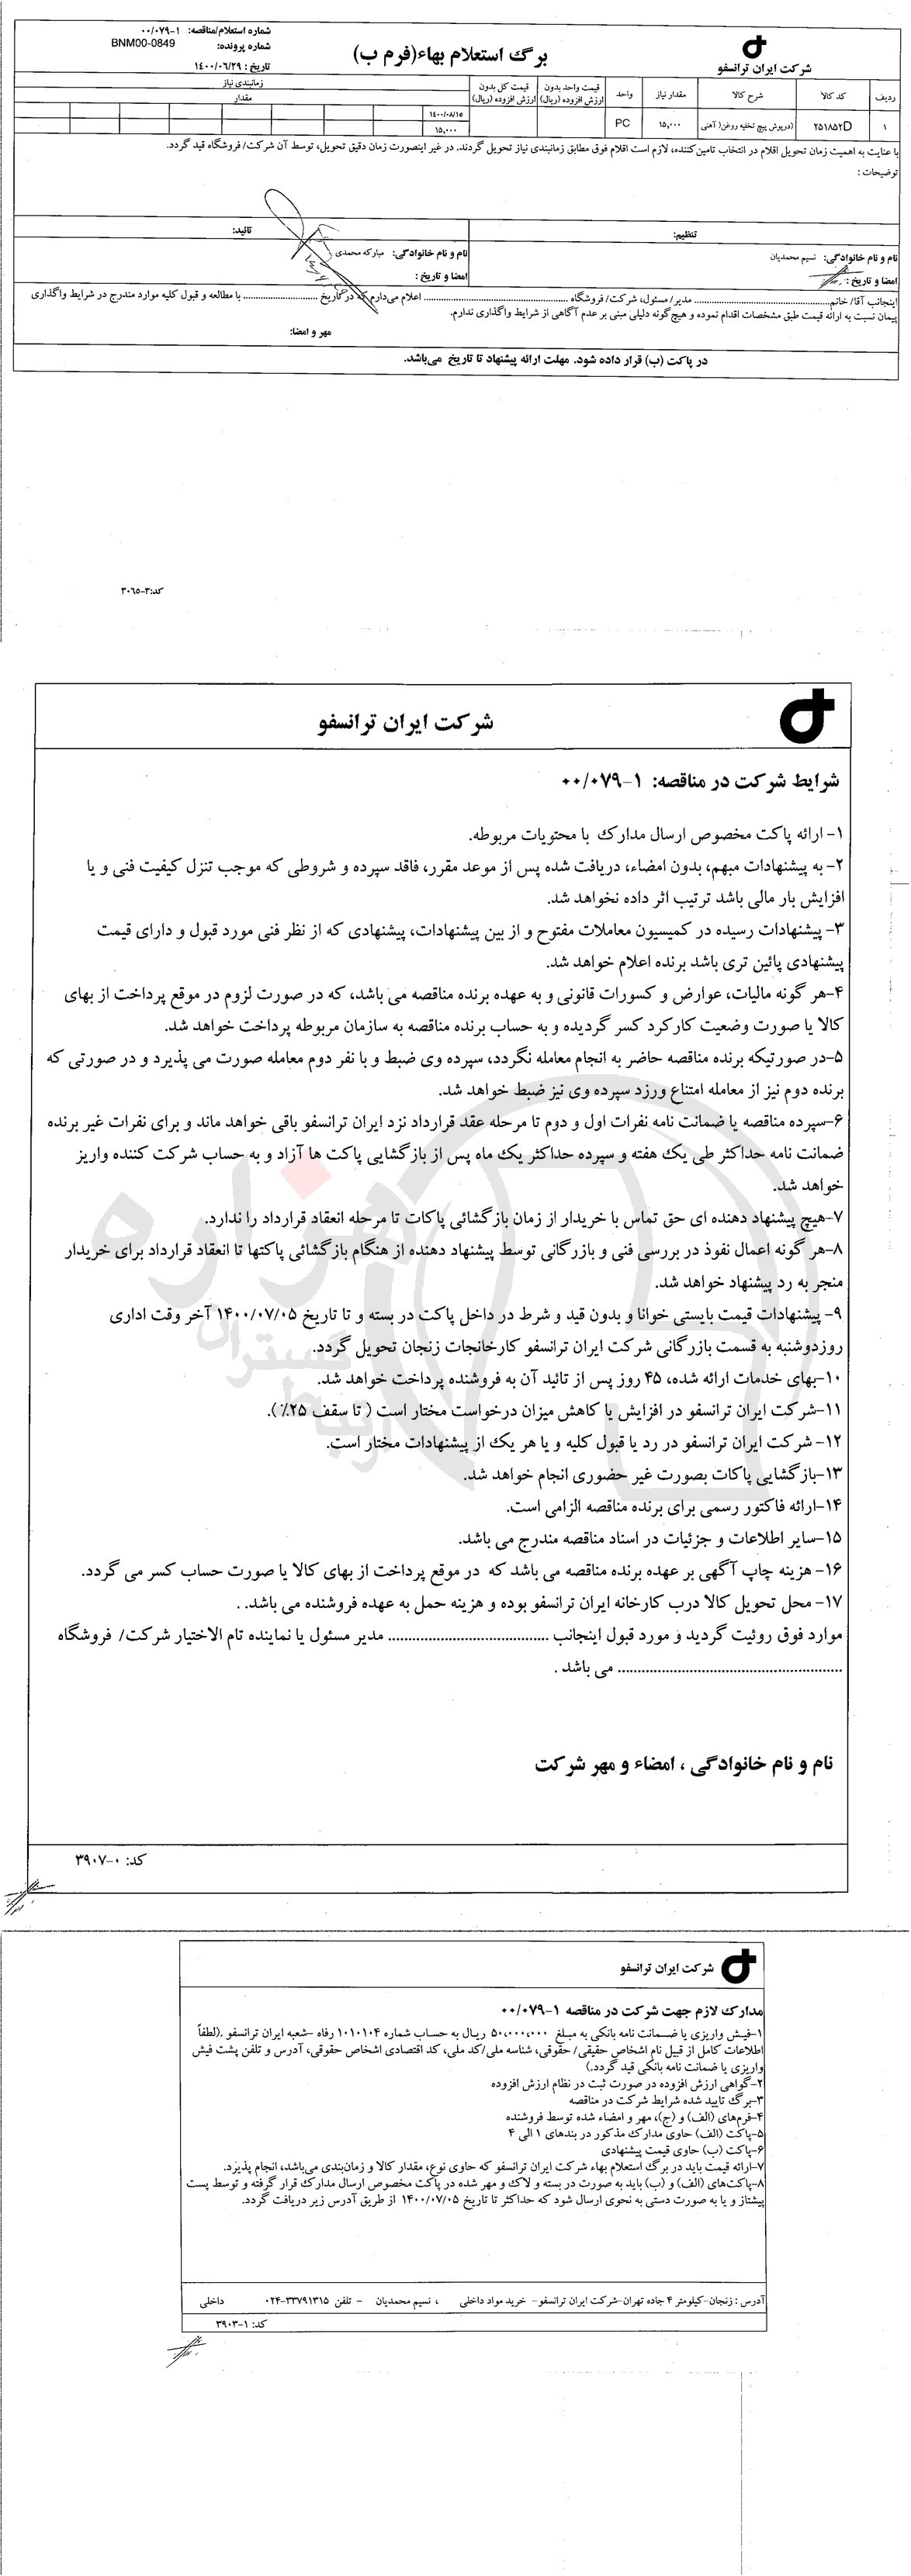 شماره استعلام/مناقصه: ۰۰/۰۷۹-۱
شماره پرونده: BNM00-0849
تاریخ : ۱۴۰۰/۰۶/۲۹
برگ استعلام بهاء(فرم ب)
شرکت ایران ترانسفو
ردیف کد کالا شرح کالا مقدار نیاز واحد قیمت واحد بدون ارزش افزوده (ریال) قیمت کل بدون ارزش افزوده (ریال) زمانبندی نیاز
مقدار
۱ ۲۵۱۸۵۲D (درپوش پیچ تخلیه روغن( آهنی ۱۵,۰۰۰ PC ۱۴۰۰/۰۸/۱۵
۱۵,۰۰۰
با عنایت به اهمیت زمان تحویل اقلام در انتخاب تامین‌کننده، لازم است اقلام فوق مطابق زمانبندی نیاز تحویل گردند. در غیر اینصورت زمان دقیق تحویل، توسط آن شرکت/ فروشگاه قید گردد.
توضیحات :
تنظیم: تائید:
نام و نام خانوادگی: نسیم محمدیان نام و نام خانوادگی: مبارکه محمدی
امضا و تاریخ : امضا و تاریخ :
اینجانب آقا/ خانم.............................. مدیر/ مسئول، شرکت/ فروشگاه .............................. اعلام می‌دارم که در تاریخ .............................. با مطالعه و قبول کلیه موارد مندرج در شرایط واگذاری
پیمان نسبت به ارائه قیمت طبق مشخصات اقدام نموده و هیچ‌گونه دلیلی مبنی بر عدم آگاهی از شرایط واگذاری ندارم.
مهر و امضا:
در پاکت (ب) قرار داده شود. مهلت ارائه پیشنهاد تا تاریخ می‌باشد.
کد:۳-۳۰۶۵
شرکت ایران ترانسفو
شرایط شرکت در مناقصه: ۱-۰۰/۰۷۹
۱- ارائه پاکت مخصوص ارسال مدارک با محتویات مربوطه.
۲- به پیشنهادات مبهم، بدون امضاء، دریافت شده پس از موعد مقرر، فاقد سپرده و شروطی که موجب تنزل کیفیت فنی و یا
افزایش بار مالی باشد ترتیب اثر داده نخواهد شد.
۳- پیشنهادات رسیده در کمیسیون معاملات مفتوح و از بین پیشنهادات، پیشنهادی که از نظر فنی مورد قبول و دارای قیمت
پیشنهادی پائین تری باشد برنده اعلام خواهد شد.
۴-هر گونه مالیات، عوارض و کسورات قانونی و به عهده برنده مناقصه می باشد، که در صورت لزوم در موقع پرداخت از بهای
کالا یا صورت وضعیت کارکرد کسر گردیده و به حساب برنده مناقصه به سازمان مربوطه پرداخت خواهد شد.
۵-در صورتیکه برنده مناقصه حاضر به انجام معامله نگردد، سپرده وی ضبط و با نفر دوم معامله صورت می پذیرد و در صورتی که
برنده دوم نیز از معامله امتناع ورزد سپرده وی نیز ضبط خواهد شد.
۶-سپرده مناقصه یا ضمانت نامه نفرات اول و دوم تا مرحله عقد قرارداد نزد ایران ترانسفو باقی خواهد ماند و برای نفرات غیر برنده
ضمانت نامه حداکثر طی یک هفته و سپرده حداکثر یک ماه پس از بازگشایی پاکت ها آزاد و به حساب شرکت کننده واریز
خواهد شد.
۷-هیچ پیشنهاد دهنده ای حق تماس با خریدار از زمان بازگشائی پاکات تا مرحله انعقاد قرارداد را ندارد.
۸-هر گونه اعمال نفوذ در بررسی فنی و بازرگانی توسط پیشنهاد دهنده از هنگام بازگشائی پاکتها تا انعقاد قرارداد برای خریدار
منجر به رد پیشنهاد خواهد شد.
۹- پیشنهادات قیمت بایستی خوانا و بدون قید و شرط در داخل پاکت در بسته و تا تاریخ ۱۴۰۰/۰۷/۰۵ آخر وقت اداری
روزدوشنبه به قسمت بازرگانی شرکت ایران ترانسفو کارخانجات زنجان تحویل گردد.
۱۰-بهای خدمات ارائه شده، ۴۵ روز پس از تائید آن به فروشنده پرداخت خواهد شد.
۱۱-شرکت ایران ترانسفو در افزایش یا کاهش میزان درخواست مختار است ( تا سقف ۲۵٪ ).
۱۲- شرکت ایران ترانسفو در رد یا قبول کلیه و یا هر یک از پیشنهادات مختار است.
۱۳-بازگشایی پاکات بصورت غیر حضوری انجام خواهد شد.
۱۴-ارائه فاکتور رسمی برای برنده مناقصه الزامی است.
۱۵-سایر اطلاعات و جزئیات در اسناد مناقصه مندرج می باشد.
۱۶- هزینه چاپ آگهی بر عهده برنده مناقصه می باشد که در موقع پرداخت از بهای کالا یا صورت حساب کسر می گردد.
۱۷- محل تحویل کالا درب کارخانه ایران ترانسفو بوده و هزینه حمل به عهده فروشنده می باشد. .
موارد فوق روئیت گردید و مورد قبول اینجانب ........................................ مدیر مسئول یا نماینده تام الاختیار شرکت/ فروشگاه
........................................................ می باشد .
نام و نام خانوادگی ، امضاء و مهر شرکت
کد: ۰-۳۹۰۷
شرکت ایران ترانسفو
مدارک لازم جهت شرکت در مناقصه ۱-۰۰/۰۷۹
۱-فیش واریزی یا ضمانت نامه بانکی به مبلغ ۵۰,۰۰۰,۰۰۰ ریال به حساب شماره ۱۰۱۰۱۰۴ رفاه -شعبه ایران ترانسفو .(لطفاً
اطلاعات کامل از قبیل نام اشخاص حقیقی/ حقوقی، شناسه ملی/کد ملی، کد اقتصادی اشخاص حقوقی، آدرس و تلفن پشت فیش
واریزی یا ضمانت نامه بانکی قید گردد.)
۲-گواهی ارزش افزوده در صورت ثبت در نظام ارزش افزوده
۳-برگ تایید شده شرایط شرکت در مناقصه
۴-فرم‌های (الف) و (ج)، مهر و امضاء شده توسط فروشنده
۵-پاکت (الف) حاوی مدارک مذکور در بندهای ۱ الی ۴
۶-پاکت (ب) حاوی قیمت پیشنهادی
۷-ارائه قیمت باید در برگ استعلام بهاء شرکت ایران ترانسفو که حاوی نوع، مقدار کالا و زمان‌بندی می‌باشد، انجام پذیرد.
۸-پاکت‌های (الف) و (ب) باید به صورت در بسته و لاک و مهر شده در پاکت مخصوص ارسال مدارک قرار گرفته و توسط پست
پیشتاز و یا به صورت دستی به نحوی ارسال شود که حداکثر تا تاریخ ۱۴۰۰/۰۷/۰۵ از طریق آدرس زیر دریافت گردد.
آدرس : زنجان-کیلومتر ۴ جاده تهران-شرکت ایران ترانسفو- خرید مواد داخلی ، نسیم محمدیان - تلفن ۳۳۷۹۱۳۱۵-۰۲۴ داخلی
کد: ۱-۳۹۰۳